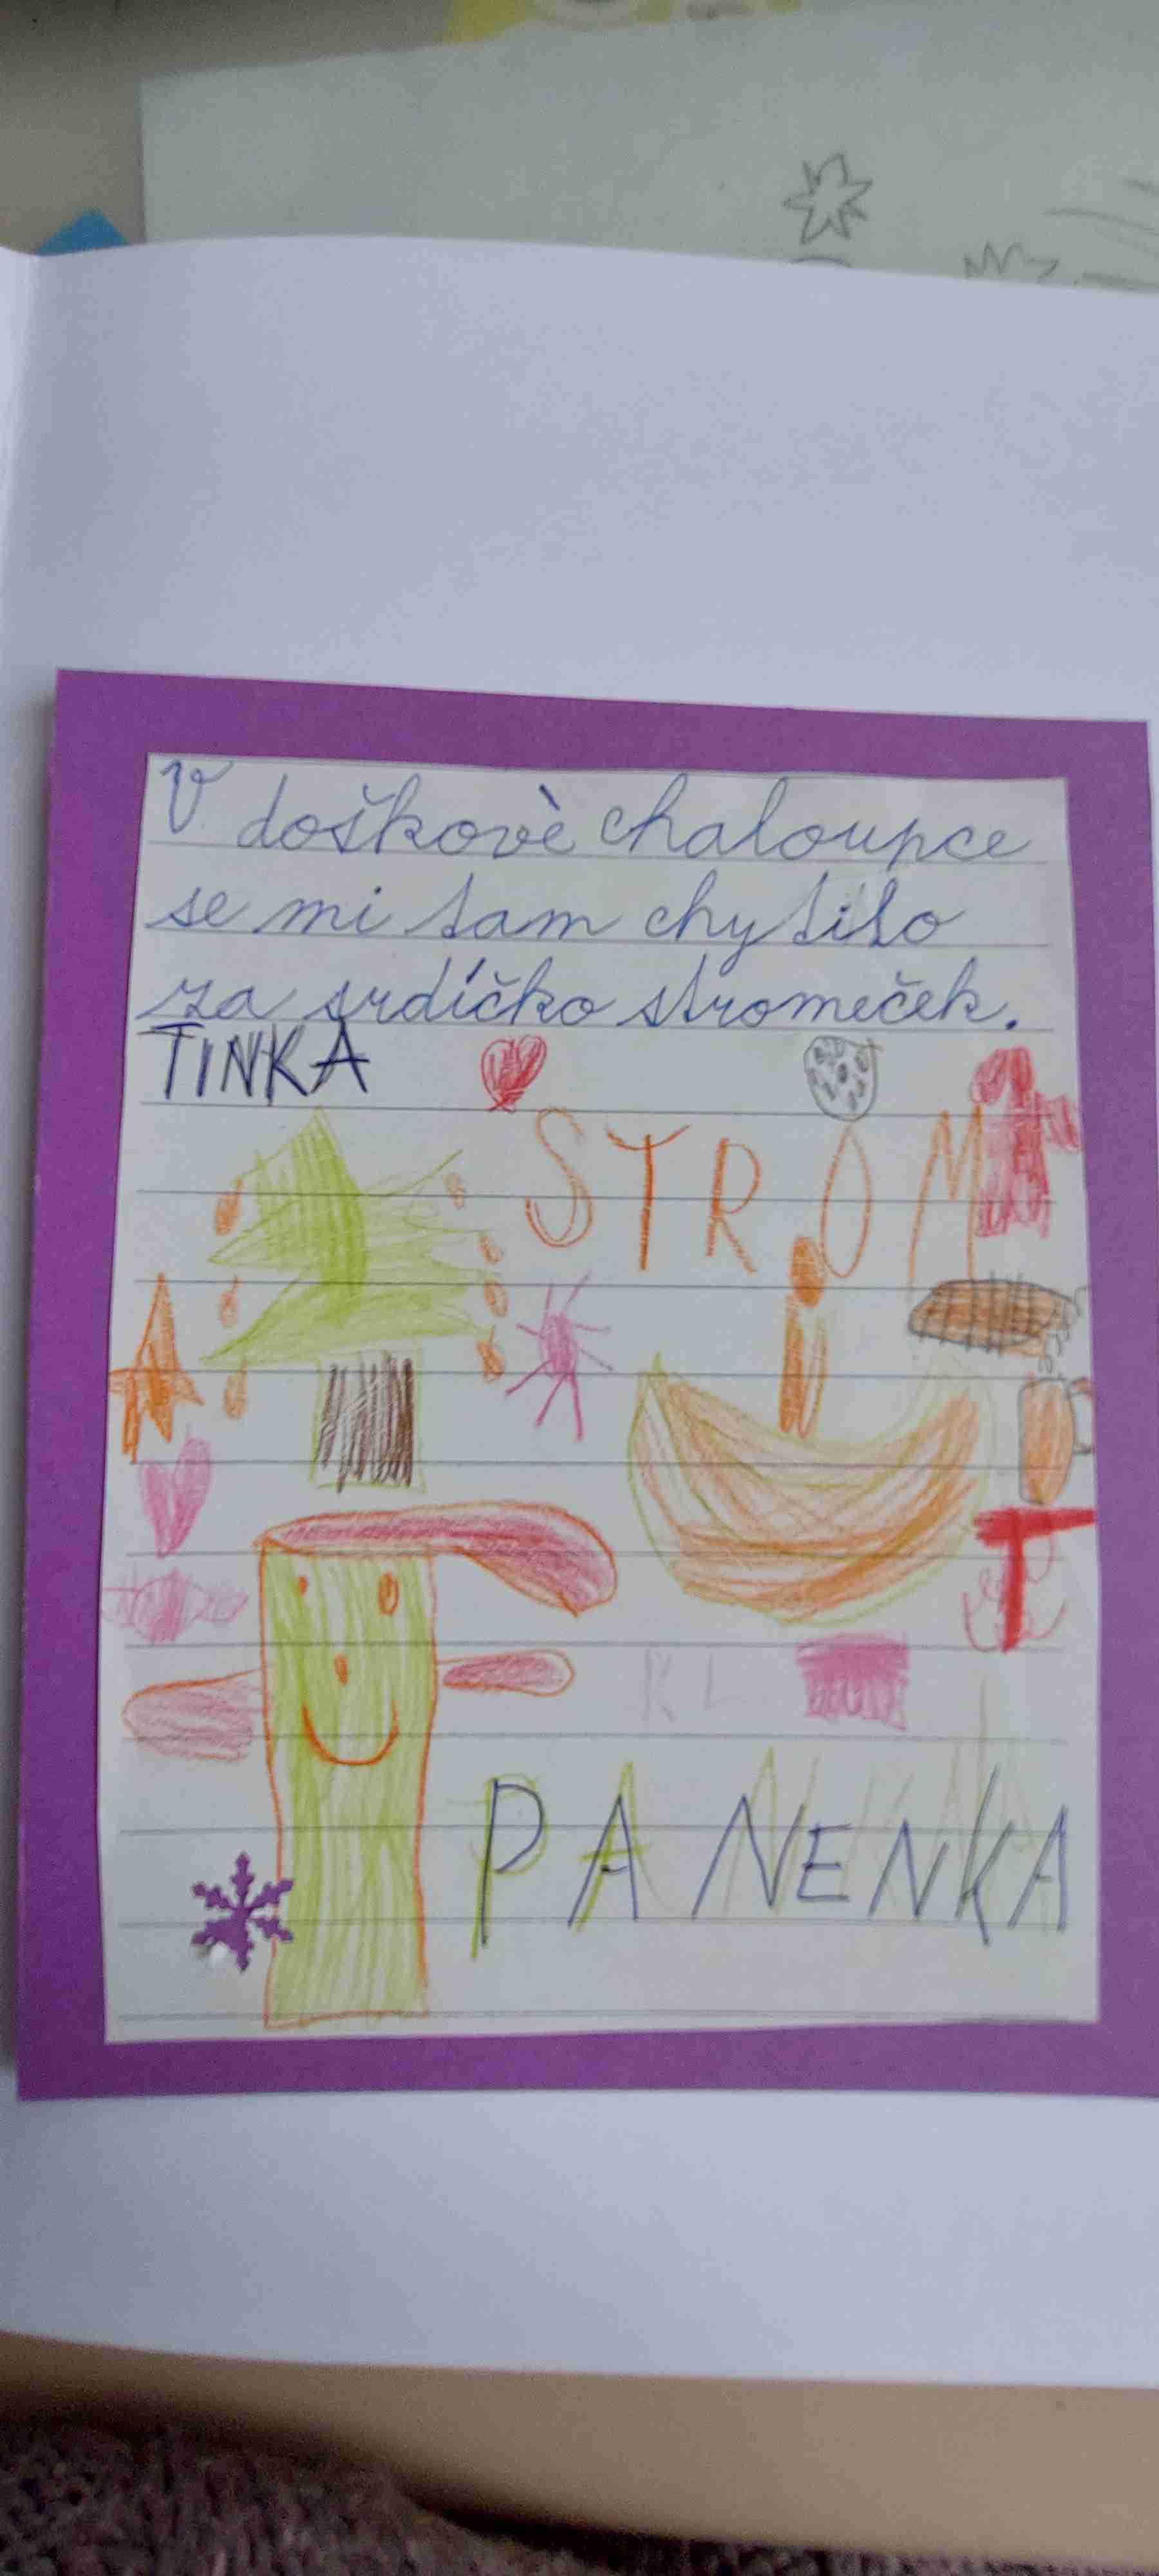 V doškovè chaloupce
se mi tam chytilo
za srdíčko stromeček.
TINKA
STROM
KL
PANENKA